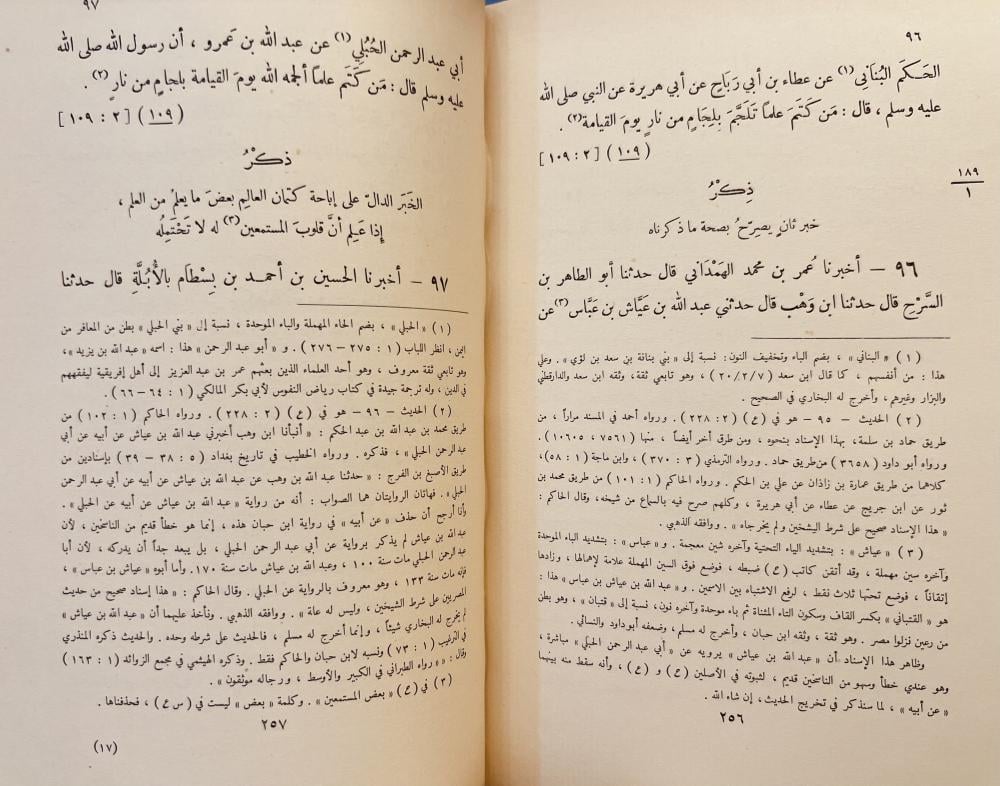 ٩٦
الحَكَم البُنَاني(١) عن عطاء بن أبي رَبَاحٍ عن أبي هريرة عن النبي صلى الله
عليه وسلم ، قال : مَن كَتَمَ علماً تَلَجَّمَ بِلِجَامٍ من نارٍ يومَ القيامة(٢) .
(١٠٩) [٢ : ١٠٩]
١٨٩
١
ذِكْرُ
خبر ثانٍ يصرِّحُ بصحة ما ذكرناه
٩٦ – أخبرنا عُمر بن محمد الهَمْدَاني قال حدثنا أبو الطاهر بن
السَّرْحِ قال حدثنا ابن وَهْب قال حدثني عبد الله بن عَيَّاش بن عَبَّاس(٣) عن
(١) « البناني » ، بضم الباء وتخفيف النون: نسبة إلى « بني بنانة بن سعد بن لؤي » . وعلي
هذا : من أنفسهم ، كما قال ابن سعد (٢٠/٢/٧) ، وهو تابعي ثقة، وثقه ابن سعد والدارقطني
والبزار وغيرهم ، وأخرج له البخاري في الصحيح .
(٢) الحديث – ٩٥ – هو في (ع) (٢ : ٢٢٨) . ورواه أحمد في المسند مراراً ، من
طريق حماد بن سلمة، بهذا الإسناد بنحوه ، ومن طرق أخر أيضاً ، منها (٧٥٦١ ، ١٠٦٠٥) .
ورواه أبو داود (٣٦٥٨) من طريق حماد . ورواه الترمذي (٣ : ٣٧٠) ، وابن ماجة (١ : ٥٨)،
كلاهما من طريق عمارة بن زاذان عن علي بن الحكم . ورواه الحاكم (١ : ١٠١) من طريق محمد بن
ثور عن ابن جريج عن عطاء عن أبي هريرة ، وكلهم صرح فيه بالسماع من شيخه، وقال الحاكم :
« هذا الإسناد صحيح على شرط الشيخين ولم يخرجاه » . ووافقه الذهبي .
(٣) « عياش » : بتشديد الياء التحتية وآخره شين معجمة . و « عباس » : بتشديد الباء الموحدة
وآخره سين مهملة ، وقد أتقن كاتب (ع) ضبطه ، فوضع فوق السين المهملة علامة لإهمالها ، وزادها
إتقاناً ، فوضع تحتها ثلاث نقط ، لرفع الاشتباه بين الاسمين . و « عبد الله بن عياش بن عباس » هذا :
هو « القتباني » بكسر القاف وسكون التاء المثناة ثم باء موحدة وآخره نون، نسبة إلى « قتبان » ، وهو بطن
من رعين نزلوا مصر . وهو ثقة ، وثقه ابن حبان ، وأخرج له مسلم، وضعفه أبو داود والنسائي .
وظاهر هذا الإسناد أن « عبد الله بن عياش » يرويه عن « أبي عبد الرحمن الحبلي » مباشرة ،
وهو عندي خطأ وسهو من الناسخين قديم ، لثبوته في الأصلين (ح) و (ع) ، وأنه سقط منه بينهما
« عن أبيه » ، لما سنذكر في تخريج الحديث، إن شاء الله .
٢٥٦
٩٧
أبي عبد الرحمن الحُبُلِي(١) عن عبد الله بن عَمرو ، أن رسول الله صلى الله
عليه وسلم قال : مَن كَتَمَ علماً ألجمه الله يومَ القيامة بلجامٍ من نارٍ(٢) .
(١٠٩) [٢ : ١٠٩]
ذكْرُ
الخَبَر الدالّ على إباحة كتمان العالِمِ بعضَ ما يعلمُ من العلم ،
إِذا عَلِم أنَّ قلوبَ المستمعين(٣) له لا تَحْتَمِلُه
٩٧ – أخبرنا الحسين بن أحمد بن بِسْطام بالأُبُلَّةِ قال حدثنا
(١) « الحبلي » ، بضم الحاء المهملة والباء الموحدة ، نسبة إلى « بني الحبلي » بطن من المعافر من
اليمن ، انظر اللباب (١ : ٢٧٥ – ٢٧٦) . و « أبو عبد الرحمن » هذا : اسمه « عبد الله بن يزيد »،
وهو تابعي ثقة معروف ، وهو أحد العلماء الذين بعثهم عمر بن عبد العزيز إلى أهل إفريقية ليفقههم
في الدين ، وله ترجمة جيدة في كتاب رياض النفوس لأبي بكر المالكي (١ : ٦٤ – ٦٦) .
(٢) الحديث – ٩٦ – هو في (ع) (٢ : ٢٢٨) . ورواه الحاكم (١ : ١٠٢) من
طريق محمد بن عبد الله بن عبد الحكم : « أنبأنا ابن وهب أخبرني عبد الله بن عياش عن أبيه عن أبي
عبد الرحمن الحبلي » ، فذكره . ورواه الخطيب في تاريخ بغداد (٥ : ٣٨ – ٣٩) بإسنادين من
طريق الأصبغ بن الفرج : « حدثنا عبد الله بن وهب عن عبد الله بن عياش عن أبيه عن أبي عبد الرحمن
الحبلي » . فهاتان الروايتان هما الصواب : أنه من رواية « عبد الله بن عياش عن أبيه عن الحبلي » .
وأنا أرجح أن حذف « عن أبيه » في رواية ابن حبان هذه ، إنما هو خطأ قديم من الناسخين ، لأن
عبد الله بن عياش لم يذكر برواية عن أبي عبد الرحمن الحبلي ، بل يبعد جداً أن يدركه، لأن أبا
عبد الرحمن الحبلي مات سنة ١٠٠ ، وعبد الله بن عياش مات سنة ١٧٠. وأما أبوه « عياش بن عباس» ،
فإنه مات سنة ١٣٣ ، وهو معروف بالرواية عن الحبلي . وقال الحاكم : « هذا إسناد صحيح من حديث
المصريين على شرط الشيخين ، وليس له علة » . ووافقه الذهبي . ونأخذ عليهما أن « عبد الله بن عياش »
لم يخرج له البخاري شيئاً ، وإنما أخرج له مسلم ، فالحديث على شرطه وحده . والحديث ذكره المنذري
في الترغيب (١ : ٧٣) ونسبه لابن حبان والحاكم فقط . وذكره الهيثمي في مجمع الزوائد (١ : ١٦٣)
وقال : « رواه الطبراني في الكبير والأوسط ، ورجاله موثقون » .
(٣) في (ع) « بعض المستمعين » . وكلمة « بعض » ليست في (س ع) ، فحذفناها .
٢٥٧
(١٧)